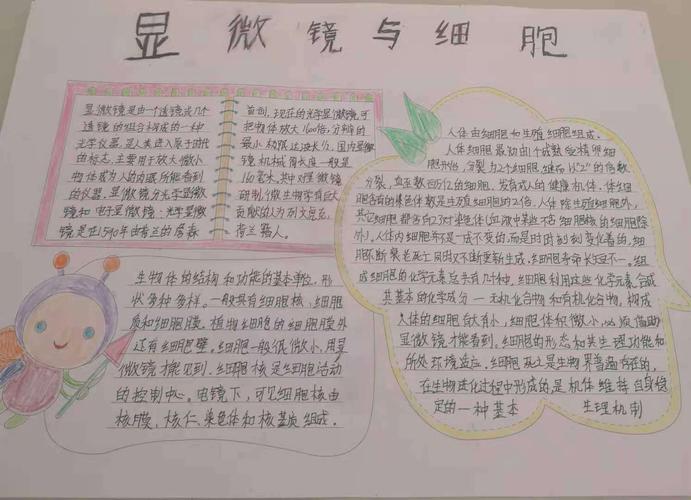 显微镜与细胞
显微镜是由一个透镜或几个
透镜的组合构成的一种
光学仪器,是人类进入原子时代
的标志,主要用于放大微小
物体成为人的肉眼所能看到
的仪器。显微镜分光学显微
镜和电子显微镜:光学显微
镜是在1590年由荷兰的詹森
首创。现在的光学显微镜可
把物体放大1600倍,分辨的
最小极限达波长1/2,国内显微
镜机械筒长度一般是
160毫米,其中对显微镜
研制,微生物学有巨大
贡献的人为列文虎克,
荷兰籍人。
生物体的结构和功能的基本单位,形
状多种多样。一般具有细胞核、细胞
质和细胞膜。植物细胞的细胞膜外
还有细胞壁。细胞一般很微小,用显
微镜才能见到。细胞核是细胞活动
的控制中心。电镜下,可见细胞核由
核膜、核仁、染色体和核基质组成。
人体由细胞和生殖细胞组成。
人体细胞最初由1个成熟受精卵细
胞开始,分裂为2个细胞,继而以"2"的倍数
分裂,直至数百亿的细胞,发育成人的健康机体,体细
胞含有的染色体数是生殖细胞的2倍。人体除生殖细胞外,
其它细胞都含有23对染色体(血液中某些不含细胞核的细胞除
外)。人体内细胞不是一成不变的,而是时时刻刻变化着的,细
胞不断衰老死亡同时又不断更新生成,细胞寿命长短不一。组
成细胞的化学元素总共有几十种,细胞利用这些化学元素合成
其基本的化学成分—无机化合物和有机化合物,构成
人体的细胞有大有小,细胞体积微小,必须借助
显微镜才能看到。细胞的形态和其生理功能和
所处环境适应。细胞死亡是生物界普遍存在的,
在生物进化过程中形成的是机体维持自身稳
定的一种基本 生理机制